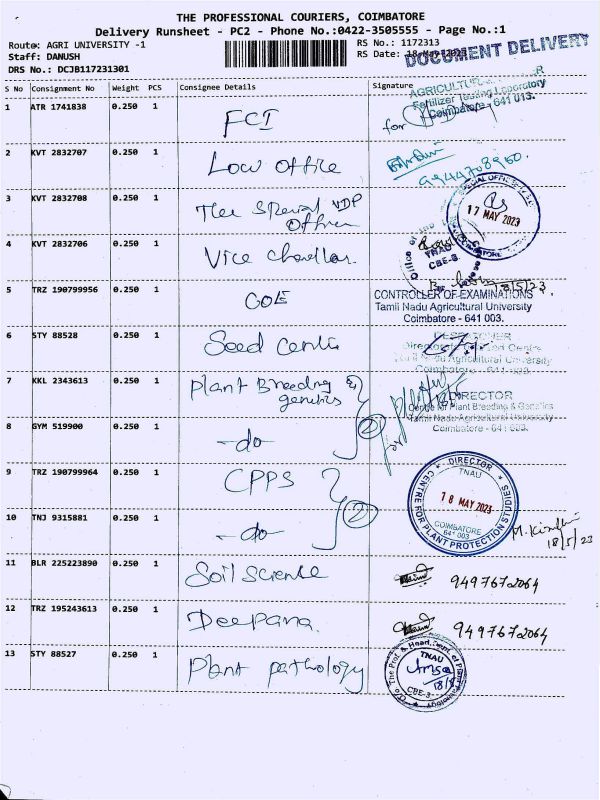 THE PROFESSIONAL COURIERS, COIMBATORE
Delivery Runsheet - PC2 - Phone No.:0422-3505555 - Page No.:1
Route: AGRI UNIVERSITY -1
RS No.: 1172313
Staff: DANUSH
RS Date: 18-May-2023
DOCUMENT DELIVERY
DRS No.: DCJB117231301
S No Consignment No Weight PCS Consignee Details Signature
1 ATR 1741838 0.250 1 FCI
Fertilizer Testing Laboratory
Coimbatore - 641 013.
for
2 KVT 2832707 0.250 1 Law office
9944708960.
3 KVT 2832708 0.250 1 The Special VDP
Officer
17 MAY 2023
4 KVT 2832706 0.250 1 Vice
TNAU
CBE-3
18/5/23.
5 TRZ 190799956 0.250 1 COE
CONTROLLER OF EXAMINATIONS
Tamil Nadu Agricultural University
Coimbatore - 641 003.
6 STY 88528 0.250 1 Seed Centre
Tamil Nadu Agricultural University
Coimbatore - 641 003.
7 KKL 2343613 0.250 1 Plant Breeding &
genetics
DIRECTOR
Centre for Plant Breeding & Genetics
Tamil Nadu Agricultural University
Coimbatore - 641 003.
for
8 GYM 519900 0.250 1 -do-
2
9 TRZ 190799964 0.250 1 CPPS
DIRECTOR
TNAU
CENTRE FOR PLANT PROTECTION STUDIES
18 MAY 2023
COIMBATORE
641 003
10 TNJ 9315881 0.250 1 -do-
2
18/5/23
11 BLR 225223890 0.250 1 Soil Science
9497672064
12 TRZ 195243613 0.250 1 Deepana.
9497672064
13 STY 88527 0.250 1 Plant pathology
O/o The Prof. & Head, Dept. of Plant Pathology
TNAU
18/5
CBE-3